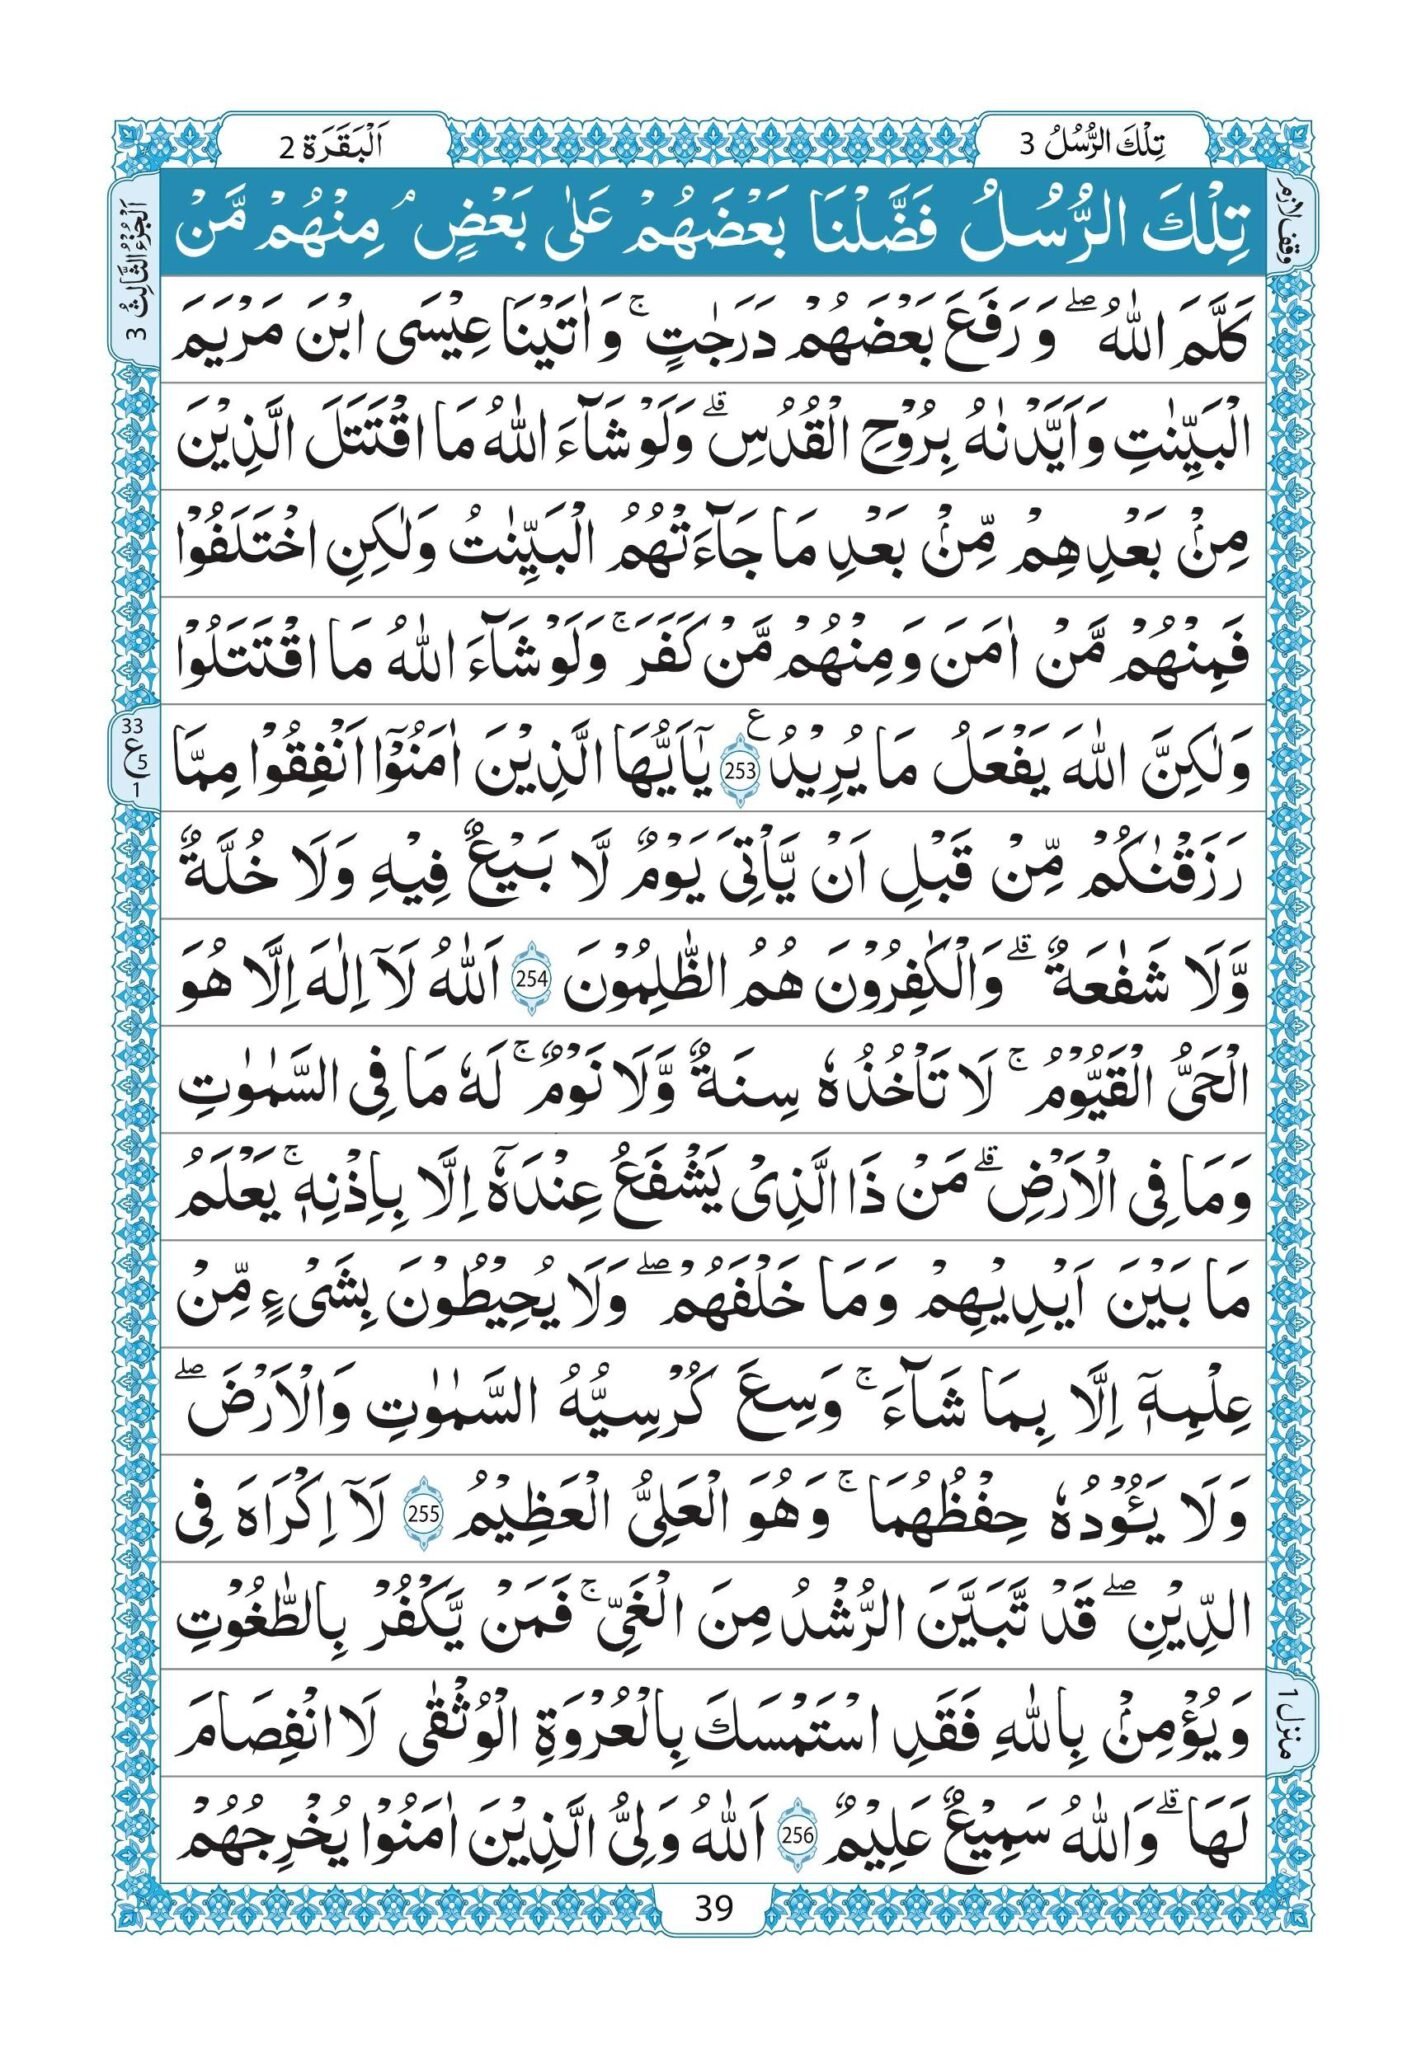 تِلْكَ الرُّسُلُ 3
اَلْبَقَرَة 2
وقف لازم
اَلْجُزْءُ الثَّالِثُ 3
تِلْكَ الرُّسُلُ فَضَّلْنَا بَعْضَهُمْ عَلٰى بَعْضٍ ۘ مِنْهُمْ مَّنْ
كَلَّمَ اللّٰهُ ۖ وَ رَفَعَ بَعْضَهُمْ دَرَجٰتٍ ۚ وَ اٰتَيْنَا عِيْسَى ابْنَ مَرْيَمَ
الْبَيِّنٰتِ وَاَيَّدْنٰهُ بِرُوْحِ الْقُدُسِ ۗ وَلَوْ شَآءَ اللّٰهُ مَا اقْتَتَلَ الَّذِيْنَ
مِنْۢ بَعْدِهِمْ مِّنْۢ بَعْدِ مَا جَآءَتْهُمُ الْبَيِّنٰتُ وَلٰكِنِ اخْتَلَفُوْا
فَمِنْهُمْ مَّنْ اٰمَنَ وَمِنْهُمْ مَّنْ كَفَرَ ۚ وَلَوْ شَآءَ اللّٰهُ مَا اقْتَتَلُوْا
وَلٰكِنَّ اللّٰهَ يَفْعَلُ مَا يُرِيْدُ ع 253 يٰٓاَيُّهَا الَّذِيْنَ اٰمَنُوْٓا اَنْفِقُوْا مِمَّا
33
ع 5
1
رَزَقْنٰكُمْ مِّنْ قَبْلِ اَنْ يَّاْتِيَ يَوْمٌ لَّا بَيْعٌ فِيْهِ وَلَا خُلَّةٌ
وَّلَا شَفٰعَةٌ ۗ وَالْكٰفِرُوْنَ هُمُ الظّٰلِمُوْنَ 254 اَللّٰهُ لَآ اِلٰهَ اِلَّا هُوَ
الْحَيُّ الْقَيُّوْمُ ۚ لَا تَاْخُذُهٗ سِنَةٌ وَّلَا نَوْمٌ ۚ لَهٗ مَا فِي السَّمٰوٰتِ
وَمَا فِي الْاَرْضِ ۗ مَنْ ذَا الَّذِيْ يَشْفَعُ عِنْدَهٗٓ اِلَّا بِاِذْنِهٖ ۚ يَعْلَمُ
مَا بَيْنَ اَيْدِيْهِمْ وَمَا خَلْفَهُمْ ۖ وَلَا يُحِيْطُوْنَ بِشَيْءٍ مِّنْ
عِلْمِهٖٓ اِلَّا بِمَا شَآءَ ۚ وَسِعَ كُرْسِيُّهُ السَّمٰوٰتِ وَالْاَرْضَ ۖ
وَلَا يَـُٔوْدُهٗ حِفْظُهُمَا ۚ وَهُوَ الْعَلِيُّ الْعَظِيْمُ 255 لَآ اِكْرَاهَ فِي
الدِّيْنِ ۖ قَدْ تَّبَيَّنَ الرُّشْدُ مِنَ الْغَيِّ ۚ فَمَنْ يَّكْفُرْ بِالطَّاغُوْتِ
وَيُؤْمِنْۢ بِاللّٰهِ فَقَدِ اسْتَمْسَكَ بِالْعُرْوَةِ الْوُثْقٰى لَا انْفِصَامَ
منزل 1
لَهَا ۗ وَاللّٰهُ سَمِيْعٌ عَلِيْمٌ 256 اَللّٰهُ وَلِيُّ الَّذِيْنَ اٰمَنُوْا يُخْرِجُهُمْ
39